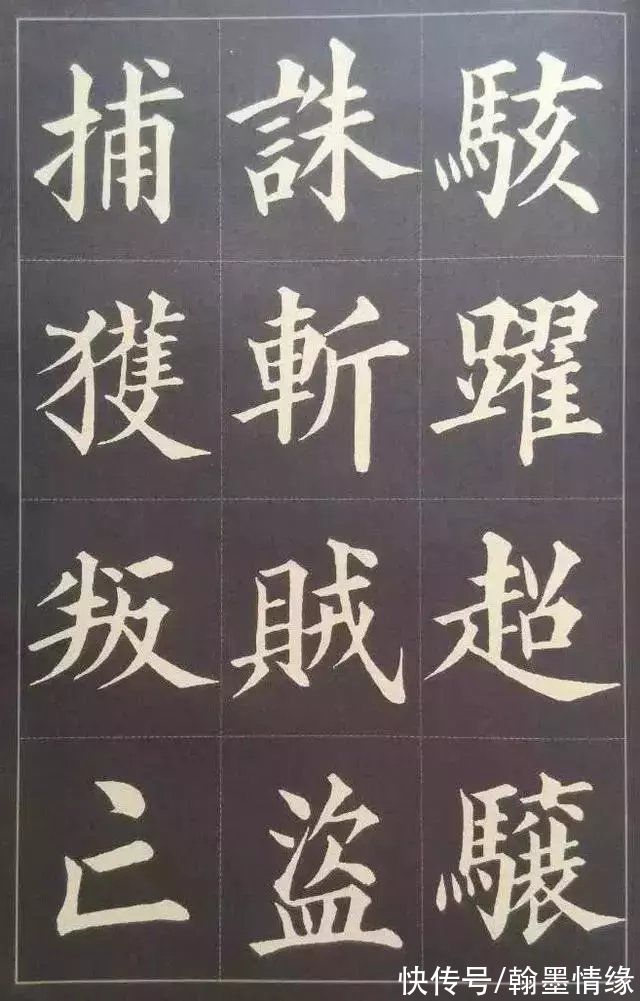 駭躍超驤
誅斬賊盜
捕獲叛亡
快传号/翰墨情缘